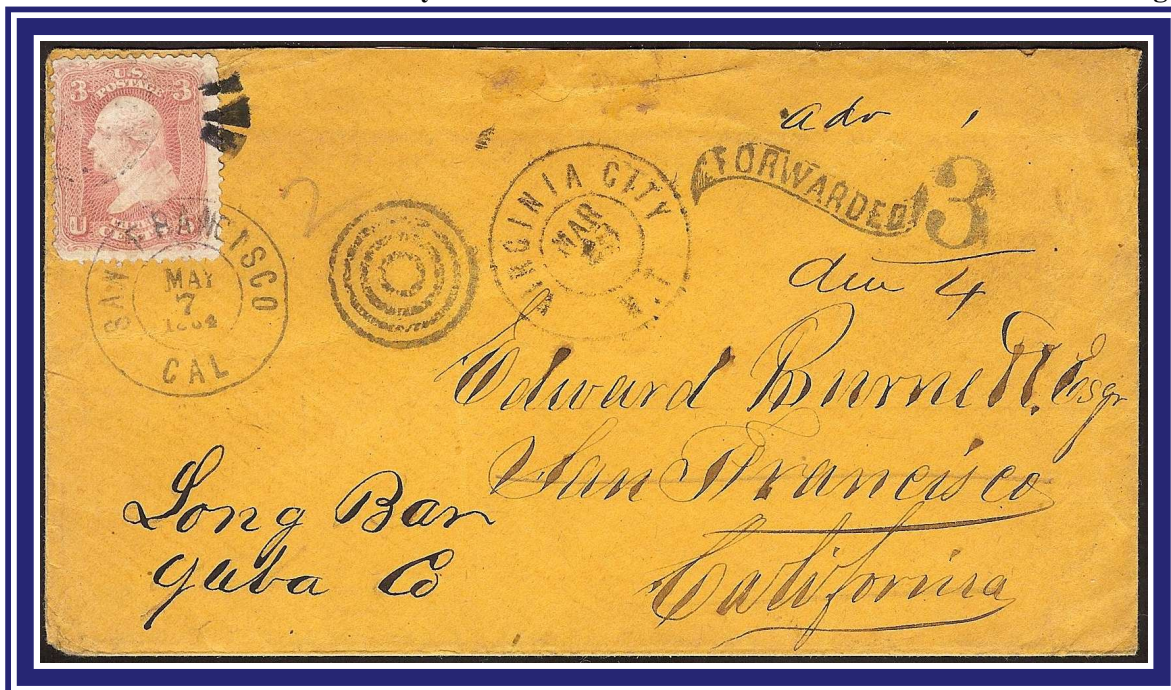 3 U.S. POSTAGE 3
U CENTS
SAN FRANCISCO
MAY
7
1864
CAL
2
VIRGINIA CITY
MAR
N.T.
adv
FORWARDED
3
due 4
Edward Burnett. Esqr
San Francisco
California
Long Bar
Yuba Co